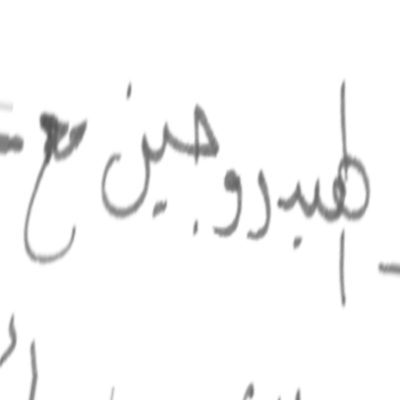 الهيدروجين مع